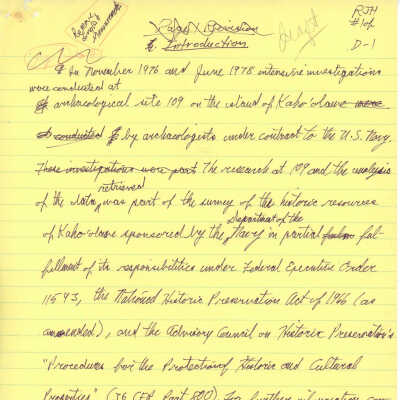 RJH
#1 of
D-1
Draft
Introduction
In November 1976 and June 1978 intensive investigations
were conducted at
archaeological site 109 on the island of Kaho'olawe were
conducted by archaeologists under contract to the U.S. Navy.
These investigations were part The research at 109 and the analysis
retrieved
of the data, was part of the survey of the historic resources
Department of the
of Kaho'olawe sponsored by the Navy in partial ful-
fillment of its responsibilities under Federal Executive Order
11593, the National Historic Preservation Act of 1966 (as
amended), and the Advisory Council on Historic Preservation's
"Procedures for the Protection of Historic and Cultural
Properties" (36 CFR Part 800). For further